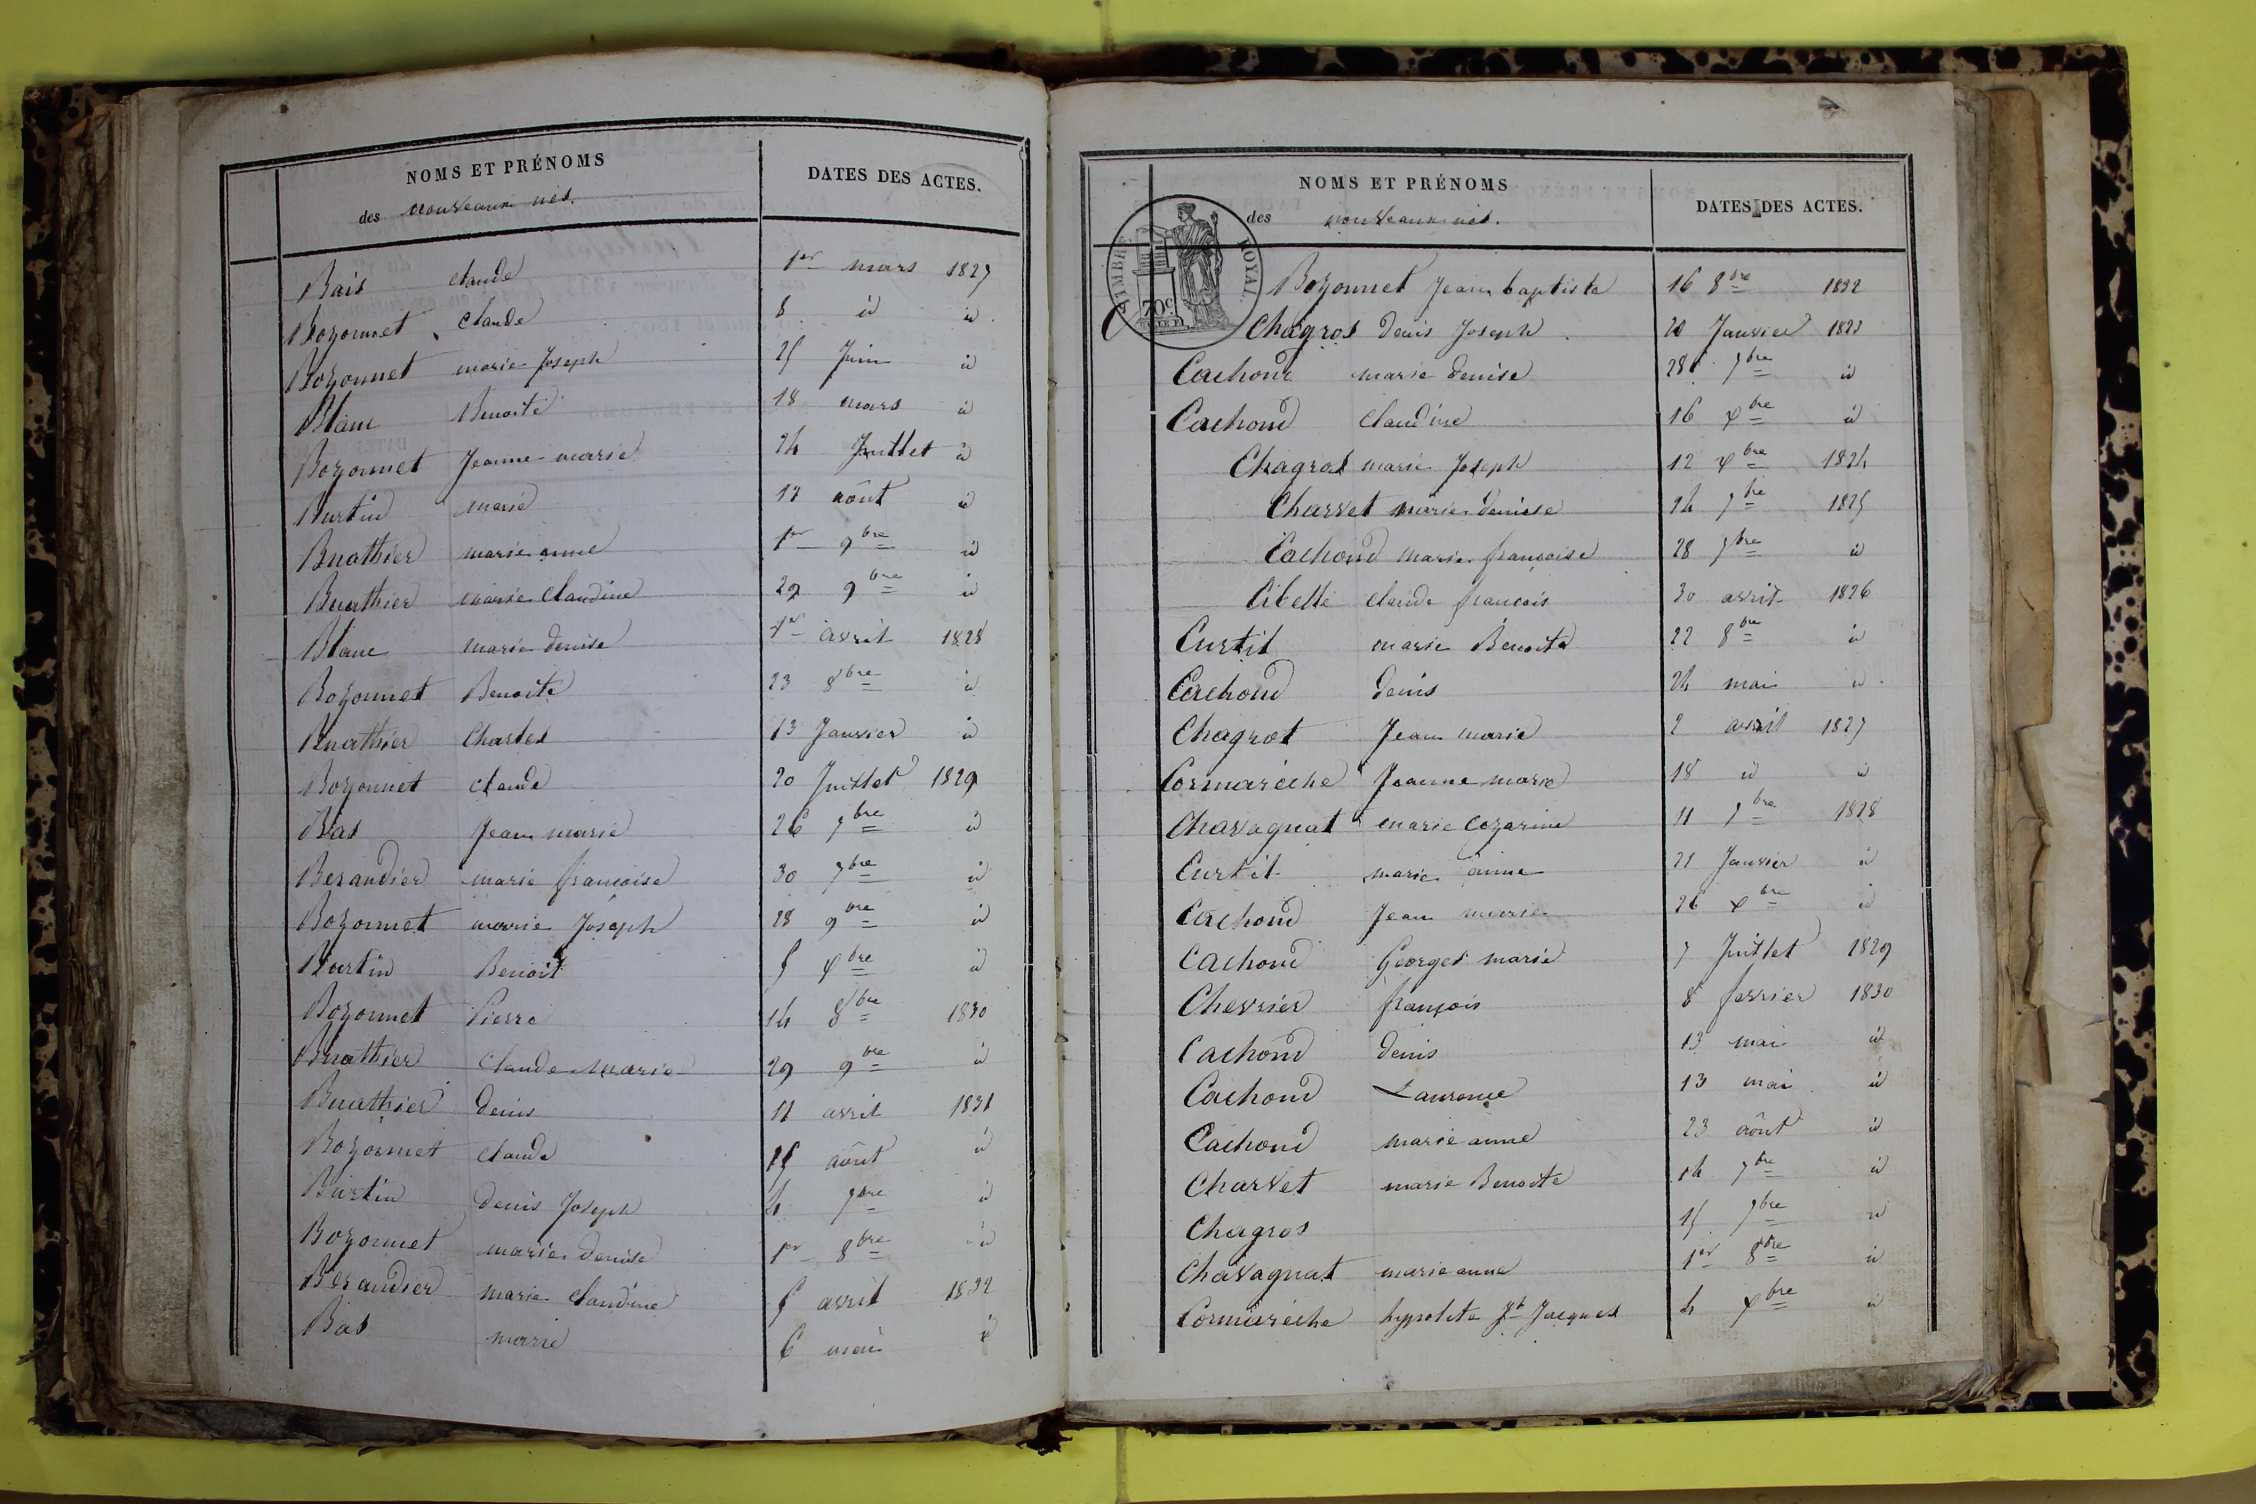 NOMS ET PRÉNOMS
des nouveaux nés.
DATES DES ACTES.
Bais claude 1er mars 1827
Bozonnet claude 8 id id
Bozonnet marie Joseph 25 Juin id
Blanc Benoite 18 mars id
Bozonnet Jeanne marie 24 Juillet id
Burtin marie 17 août id
Buathier marie anne 1er 9bre id
Buathier marie Claudine 29 9bre id
Blanc marie denise 1er avril 1828
Bozonnet Benoite 23 8bre id
Buathier Charles 13 Janvier id
Bozonnet claude 20 Juillet 1829
Bas Jean marie 26 7bre id
Berandier marie françoise 30 7bre id
Bozonnet marie Joseph 28 9bre id
Burtin Benoit 5 Xbre id
Bozonnet Pierre 14 8bre 1830
Buathier Claude Marie 29 9bre id
Buathier denis 11 avril 1831
Bozonnet claude 15 août id
Burtin denis Joseph 4 7bre id
Bozonnet marie denise 1er 8bre id
Berandier marie claudine 5 avril 1832
Bas marie 6 mai id
NOMS ET PRÉNOMS
des nouveaux nés.
DATES DES ACTES.
TIMBRE ROYAL
70c
Bozonnet Jean baptiste 16 8bre 1832
C
Chagros denis Joseph 20 Janvier 1823
Cachond marie denise 28 7bre id
Cachond claudine 16 Xbre id
Chagros marie Joseph 12 Xbre 1824
Charvet marie denise 14 7bre 1825
Cachond marie françoise 28 7bre id
Cibelle claude françois 30 avril 1826
Curtil marie Benoite 22 8bre id
Cachond denis 24 mai id
Chagrot Jean marie 2 avril 1827
Cormarèche Jeanne marie 18 id id
Chavagnat marie Cozarine 11 7bre 1828
Curtil marie anne 21 Janvier id
Cachond Jean marie 26 Xbre id
Cachond Georges marie 7 Juillet 1829
Chevrier françois 8 fevrier 1830
Cachond denis 13 mai id
Cachond Laurence 13 mai id
Cachond marie anne 23 août id
Charvet marie Benoite 14 7bre id
Chagros 15 7bre id
Chavagnat marie anne 1er 8bre id
Cormarèche hypolite Jh Jacques 4 Xbre id